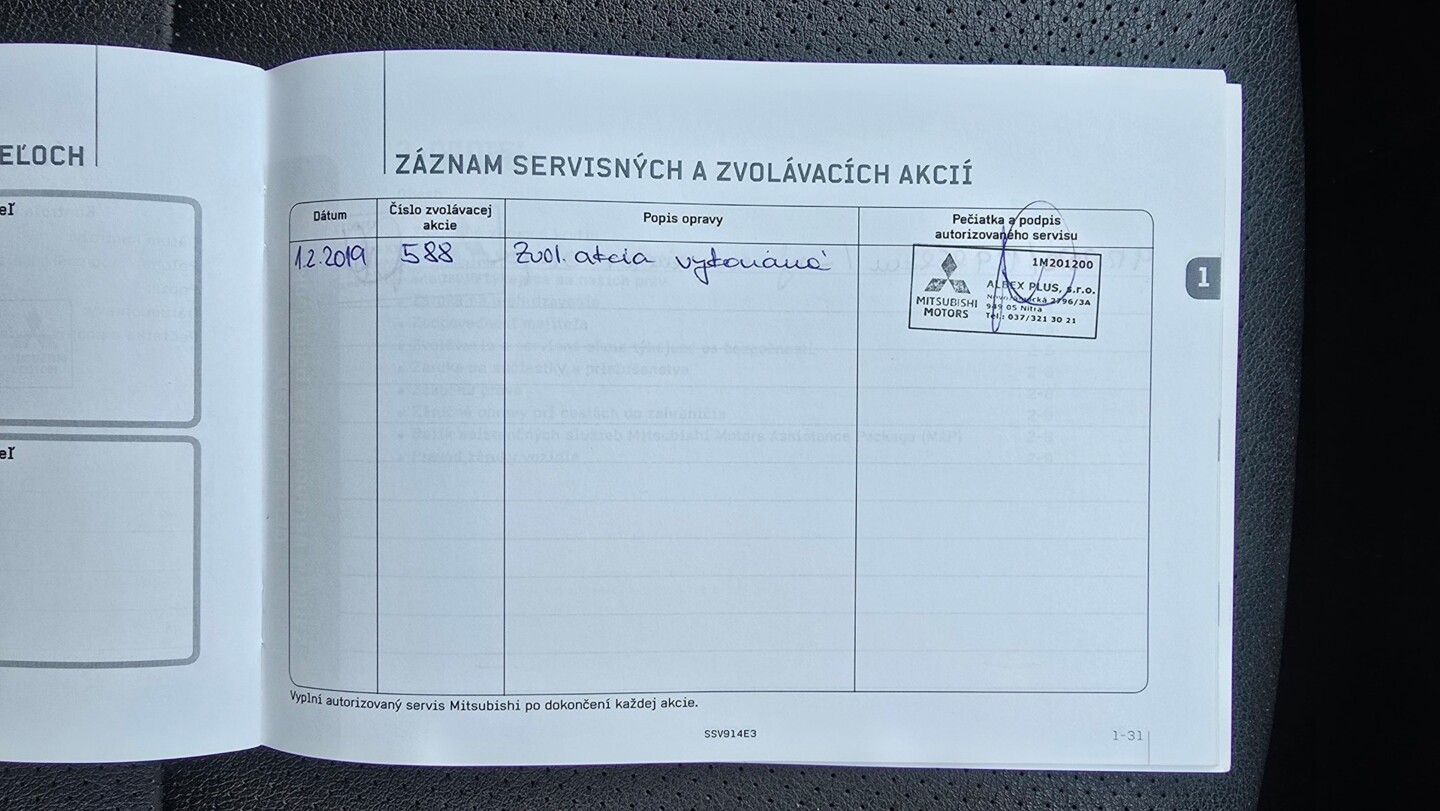 EĽOCH
eľ
eľ
ZÁZNAM SERVISNÝCH A ZVOLÁVACÍCH AKCIÍ
Dátum
Číslo zvolávacej
akcie
Popis opravy
Pečiatka a podpis
autorizovaného servisu
1.2.2019
588
Zvol. akcia vykonaná
MITSUBISHI
MOTORS
1M201200
ALBEX PLUS, s.r.o.
2796/3A
949 05 Nitra
Tel.: 037/321 30 21
1
Vyplní autorizovaný servis Mitsubishi po dokončení každej akcie.
SSV914E3
1-31